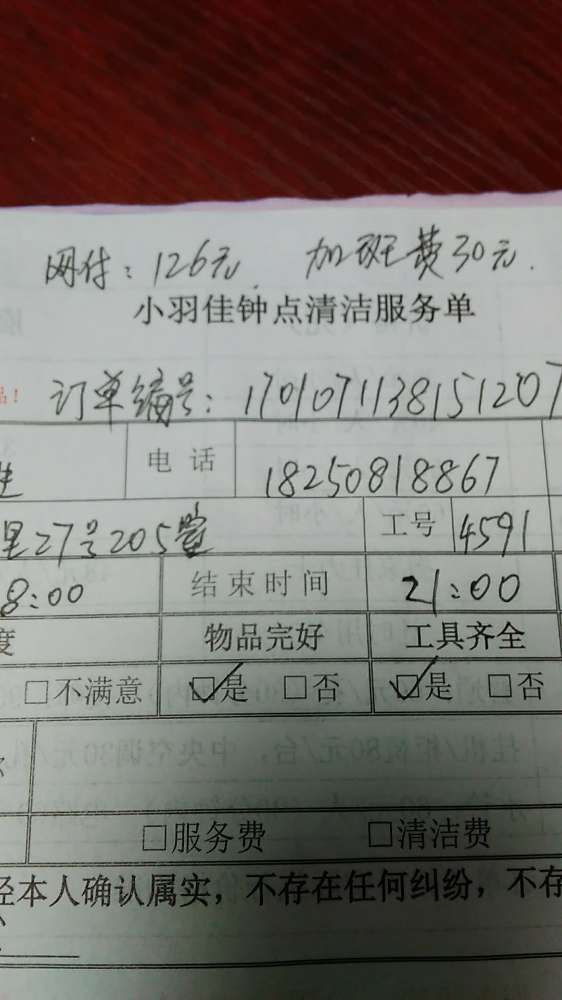 网付：126元. 加班费30元.
小羽佳钟点清洁服务单
品！ 订单编号：1701071138151207
生 电话 18250818867
里27号205室 工号 4591
8:00 结束时间 21:00
度 物品完好 工具齐全
□不满意 ☑是 □否 ☑是 □否
□服务费 □清洁费
经本人确认属实，不存在任何纠纷，不存